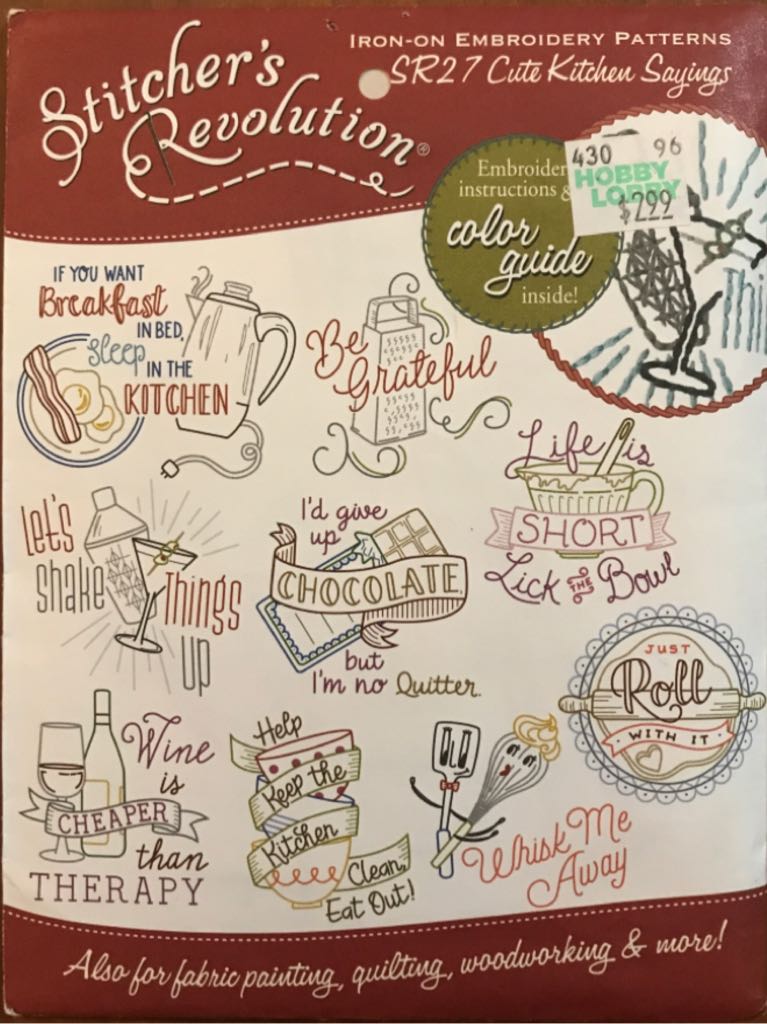 Stitcher's
Revolution®
IRON-ON EMBROIDERY PATTERNS
SR27 Cute Kitchen Sayings
Embroider
instructions &
color
guide
inside!
430 96
HOBBY
LOBBY
$2.99
Thi
IF YOU WANT
Breakfast
IN BED,
Sleep IN THE
KITCHEN
Be
Grateful
Life is
SHORT
Lick THE Bowl
Let's
Shake
Things
UP
I'd give
up
CHOCOLATE
but
I'm no Quitter.
JUST
Roll
WITH IT
Wine
is
CHEAPER
than
THERAPY
Help
Keep the
Kitchen
Clean,
Eat Out!
Whisk Me
Away
Also for fabric painting, quilting, woodworking & more!